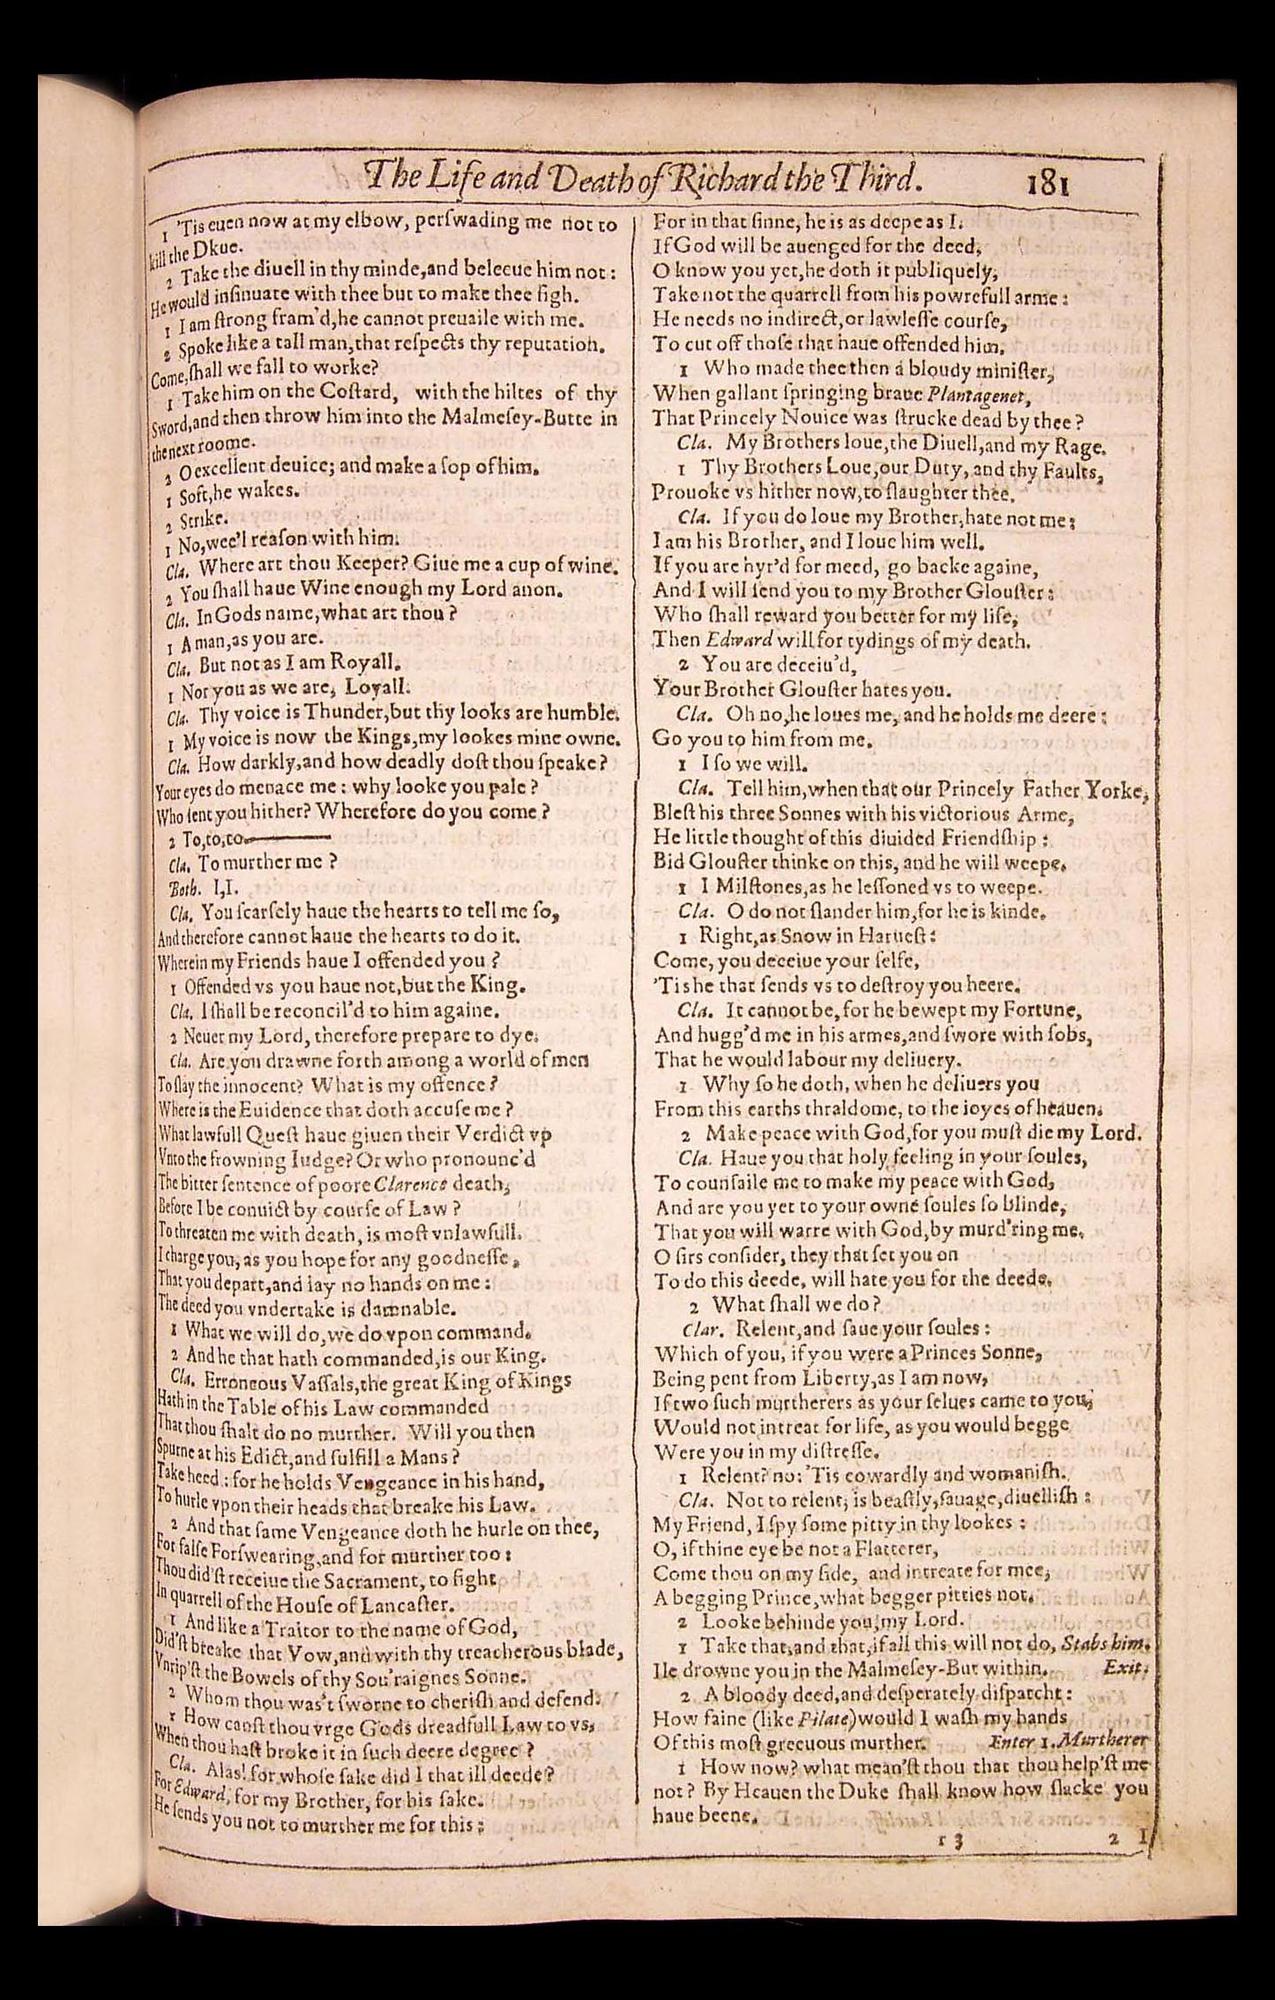 The Life and Death of Richard the Third. 181
1 'Tis euen now at my elbow, perſwading me not to
kill the Dkue.
2 Take the diuell in thy minde,and beleeue him not:
He would inſinuate with thee but to make thee ſigh.
1 I am ſtrong fram'd,he cannot preuaile with me.
2 Spoke like a tall man,that reſpects thy reputation.
Come,ſhall we fall to worke?
1 Take him on the Coſtard, with the hiltes of thy
Sword,and then throw him into the Malmeſey-Butte in
the next roome.
2 O excellent deuice; and make a ſop of him.
1 Soft,he wakes.
2 Strike.
1 No,wee'l reaſon with him.
Cla. Where art thou Keeper? Giue me a cup of wine.
2 You ſhall haue Wine enough my Lord anon.
Cla. In Gods name,what art thou?
1 A man,as you are.
Cla. But not as I am Royall.
1 Nor you as we are, Loyall.
Cla. Thy voice is Thunder,but thy looks are humble.
1 My voice is now the Kings,my lookes mine owne.
Cla. How darkly,and how deadly doſt thou ſpeake?
Your eyes do menace me: why looke you pale?
Who ſent you hither? Wherefore do you come?
2 To,to,to———
Cla. To murther me?
Both. I,I.
Cla. You ſcarſely haue the hearts to tell me ſo,
And therefore cannot haue the hearts to do it.
Wherein my Friends haue I offended you?
1 Offended vs you haue not,but the King.
Cla. I ſhall be reconcil'd to him againe.
2 Neuer my Lord, therefore prepare to dye.
Cla. Are you drawne forth among a world of men
To ſlay the innocent? What is my offence?
Where is the Euidence that doth accuſe me?
What lawfull Queſt haue giuen their Verdict vp
Vnto the frowning Iudge? Or who pronounc'd
The bitter ſentence of poore Clarence death,
Before I be conuict by courſe of Law?
To threaten me with death, is moſt vnlawfull.
I charge you, as you hope for any goodneſſe,
That you depart,and lay no hands on me:
The deed you vndertake is damnable.
1 What we will do,we do vpon command.
2 And he that hath commanded,is our King.
Cla. Erroneous Vaſſals,the great King of Kings
Hath in the Table of his Law commanded
That thou ſhalt do no murther. Will you then
Spurne at his Edict,and fulfill a Mans?
Take heed: for he holds Vengeance in his hand,
To hurle vpon their heads that breake his Law.
2 And that ſame Vengeance doth he hurle on thee,
For falſe Forſwearing,and for murther too:
Thou did'ſt receiue the Sacrament, to fight
In quarrell of the Houſe of Lancaſter.
1 And like a Traitor to the name of God,
Did'ſt breake that Vow,and with thy treacherous blade,
Vnrip'ſt the Bowels of thy Sou'raignes Sonne.
2 Whom thou was't ſworne to cheriſh and defend.
1 How canſt thou vrge Gods dreadfull Law to vs,
When thou haſt broke it in ſuch deere degree?
Cla. Alas! for whoſe ſake did I that ill deede?
For Edward, for my Brother, for his ſake.
He ſends you not to murther me for this:
For in that ſinne, he is as deepe as I.
If God will be auenged for the deed,
O know you yet,he doth it publiquely,
Take not the quarrell from his powrefull arme:
He needs no indirect,or lawleſſe courſe,
To cut off thoſe that haue offended him.
1 Who made thee then a bloudy miniſter,
When gallant ſpringing braue Plantagenet,
That Princely Nouice was ſtrucke dead by thee?
Cla. My Brothers loue,the Diuell,and my Rage.
1 Thy Brothers Loue,our Duty, and thy Faults,
Prouoke vs hither now,to ſlaughter thee.
Cla. If you do loue my Brother,hate not me:
I am his Brother, and I loue him well.
If you are hyr'd for meed, go backe againe,
And I will ſend you to my Brother Glouſter:
Who ſhall reward you better for my life,
Then Edward will for tydings of my death.
2 You are deceiu'd,
Your Brother Glouſter hates you.
Cla. Oh no,he loues me, and he holds me deere:
Go you to him from me.
1 I ſo we will.
Cla. Tell him,when that our Princely Father Yorke,
Bleſt his three Sonnes with his victorious Arme,
He little thought of this diuided Friendſhip:
Bid Glouſter thinke on this, and he will weepe.
1 I Milſtones,as he leſſoned vs to weepe.
Cla. O do not ſlander him,for he is kinde.
1 Right,as Snow in Harueſt:
Come, you deceiue your ſelfe,
'Tis he that ſends vs to deſtroy you heere.
Cla. It cannot be, for he bewept my Fortune,
And hugg'd me in his armes,and ſwore with ſobs,
That he would labour my deliuery.
1 Why ſo he doth, when he deliuers you
From this earths thraldome, to the ioyes of heauen.
2 Make peace with God,for you muſt die my Lord.
Cla. Haue you that holy feeling in your ſoules,
To counſaile me to make my peace with God,
And are you yet to your owne ſoules ſo blinde,
That you will warre with God,by murd'ring me.
O ſirs conſider, they that ſet you on
To do this deede, will hate you for the deede.
2 What ſhall we do?
Clar. Relent,and ſaue your ſoules:
Which of you, if you were a Princes Sonne,
Being pent from Liberty,as I am now,
If two ſuch murtherers as your ſelues came to you,
Would not intreat for life, as you would begge
Were you in my diſtreſſe.
1 Relent? no: 'Tis cowardly and womaniſh.
Cla. Not to relent, is beaſtly,ſauage,diuelliſh:
My Friend, I ſpy ſome pitty in thy lookes:
O, if thine eye be not a Flatterer,
Come thou on my ſide, and intreate for mee,
A begging Prince,what begger pitties not.
2 Looke behinde you,my Lord.
1 Take that,and that,if all this will not do, Stabs him.
Ile drowne you in the Malmeſey-But within. Exit.
2 A bloody deed,and deſperately diſpatcht:
How faine (like Pilate) would I waſh my hands
Of this moſt greeuous murther. Enter 1.Murtherer
1 How now? what mean'ſt thou that thou help'ſt me
not? By Heauen the Duke ſhall know how ſlacke you
haue beene.
r 3 2 I